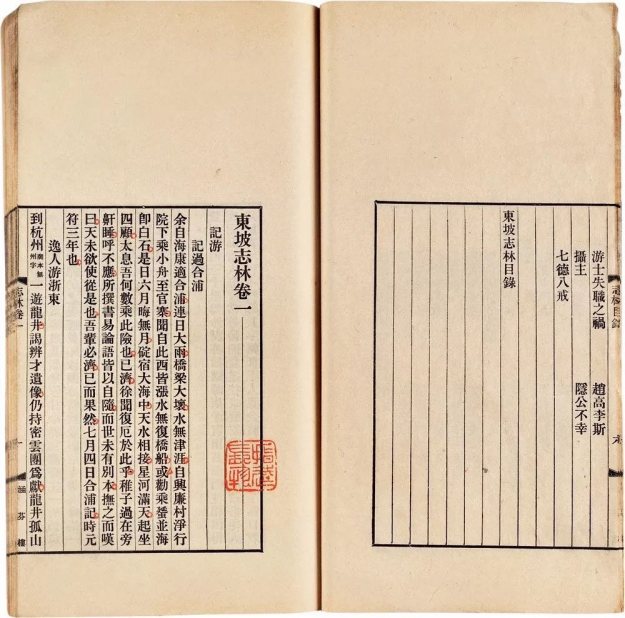 志林目錄
游士失職之禍 趙高李斯
攝主 隱公不幸
七德八戒
東坡志林目錄
東坡志林卷一
記游
記過合浦
余自海康適合浦連日大雨橋梁大壞水無津涯自興廉村淨行
院下乘小舟至官寨聞自此西皆漲水無復橋船或勸乘蜑並海
卽白石是日六月晦無月碇宿大海中天水相接星河滿天起坐
四顧太息吾何數乘此險也已濟徐聞復厄於此乎稚子過在旁
鼾睡呼不應所撰書易論語皆以自隨而世未有別本撫之而嘆
曰天未欲使從是也吾輩必濟已而果然七月四日合浦記時元
符三年也
逸人游浙東
到杭州商本無州字一遊龍井謁辨才遺像仍持密雲團爲獻龍井孤山
志林卷一 一 涵芬樓